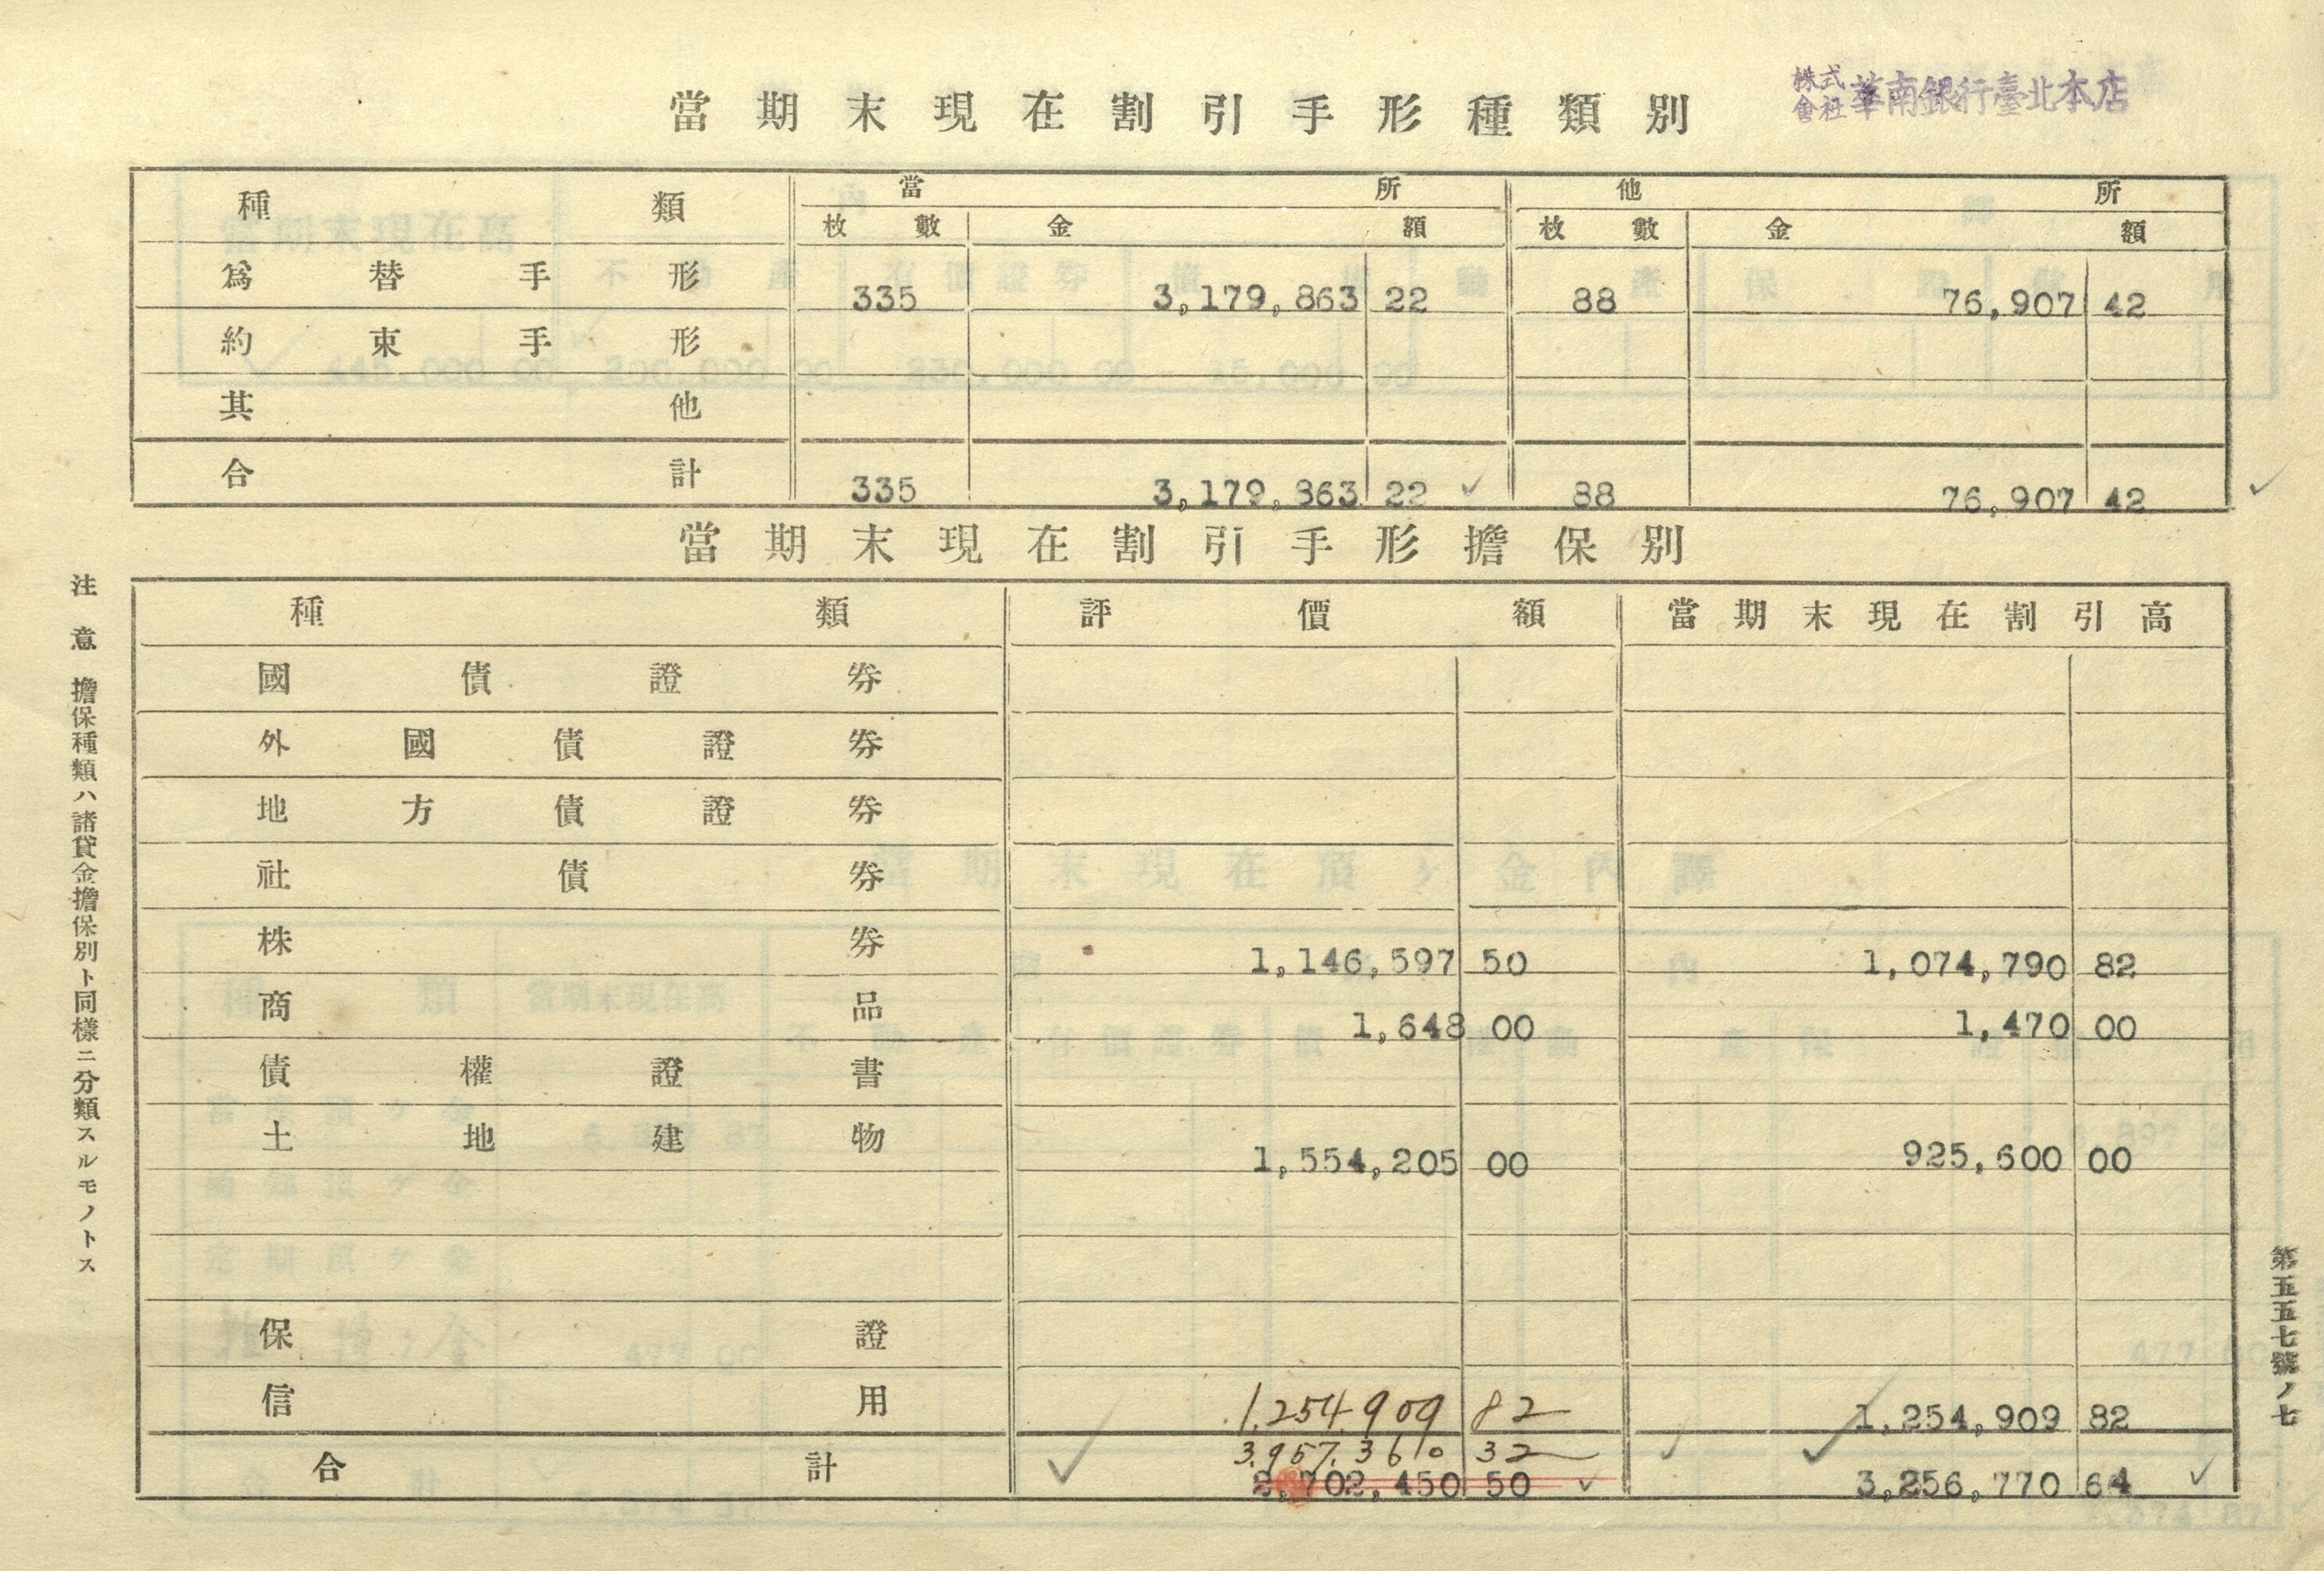 株式會社華南銀行臺北本店
當期末現在割引手形種類別
種類 當所 他所
枚數 金額 枚數 金額
爲替手形 335 3,179,863 22 88 76,907 42
約束手形
其他
合計 335 3,179,863 22 ✓ 88 76,907 42 ✓
當期末現在割引手形擔保別
種類 評價額 當期末現在割引高
國債證券
外國債證券
地方債證券
社債券
株券 1,146,597 50 1,074,790 82
商品 1,648 00 1,470 00
債權證書
土地建物 1,554,205 00 925,600 00
保證
信用 1.254.909 82 1,254,909 82
3.957.360 32
合計 2,702,450 50 3,256,770 64
注意 擔保種類ハ諸貸金擔保別ト同樣ニ分類スルモノトス
第五五七號ノ七